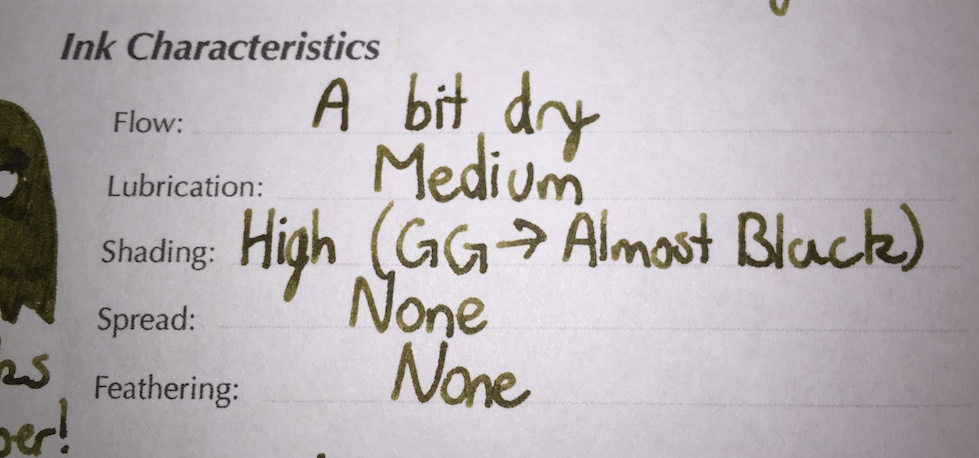 Ink Characteristics
Flow: A bit dry
Lubrication: Medium
Shading: High (GG → Almost Black)
Spread: None
Feathering: None